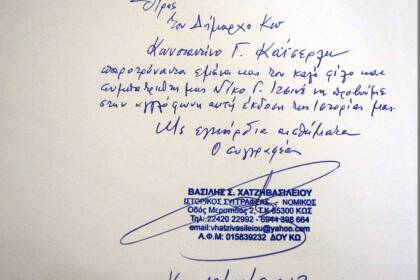 Προς
τον Δήμαρχο Κω
Κωνσταντίνο Γ. Καΐσερλη
εμένα και τον καλό φίλο και
συμπατριώτη μας Νίκο Γ. να προβούμε
στην αγγλόφωνη αυτή έκδοση της Ιστορίας μας.
Με εγκάρδια αισθήματα
Ο συγγραφέας
ΒΑΣΙΛΗΣ Σ. ΧΑΤΖΗΒΑΣΙΛΕΙΟΥ
ΙΣΤΟΡΙΚΟΣ ΣΥΓΓΡΑΦΕΑΣ - ΝΟΜΙΚΟΣ
Οδός Μεροπίδος 2, Τ.Κ 85300 ΚΩΣ
Τηλ: 22420 22992 - 6944 398 664
email:vhatzivasileiou@yahoo.com
Α.Φ.Μ: 015839232 ΔΟΥ ΚΩ